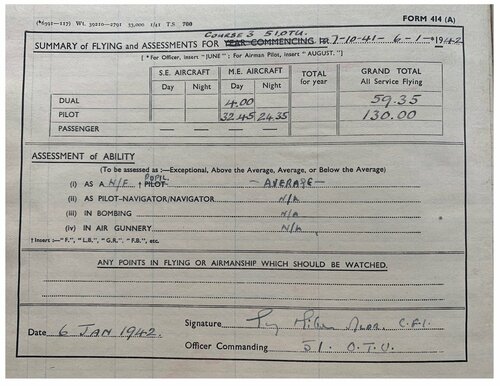 (*6391—117) Wt. 39210—2791 33,000 1/41 T.S. 700
FORM 414 (A)
COURSE 3 51OTU.
SUMMARY of FLYING and ASSESSMENTS FOR YEAR COMMENCING 7-10-41 — 6-1-1942
[* For Officer, insert "JUNE"; For Airman Pilot, insert "AUGUST."]
S.E. AIRCRAFT M.E. AIRCRAFT TOTAL for year GRAND TOTAL All Service Flying
Day Night Day Night
DUAL 4.00 59.35
PILOT 32.45 24.35 130.00
PASSENGER — — — —
ASSESSMENT of ABILITY
(To be assessed as:—Exceptional, Above the Average, Average, or Below the Average)
PUPIL
(i) AS A N/F † PILOT — AVERAGE —
(ii) AS PILOT-NAVIGATOR/NAVIGATOR N/A
(iii) IN BOMBING N/A
(iv) IN AIR GUNNERY N/A
† Insert:—"F.", "L.B.", "G.R." "F.B.", etc.
ANY POINTS IN FLYING OR AIRMANSHIP WHICH SHOULD BE WATCHED.
Date 6 JAN 1942. Signature C.F.I.
Officer Commanding 51. O.T.U.